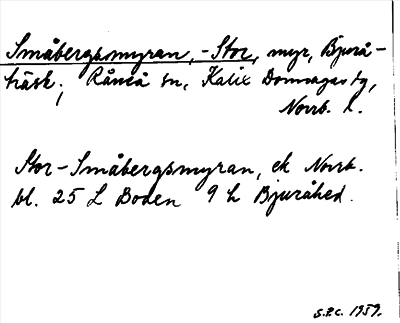 Småbergsmyran, -Stor, myr, Bjurå-
träsk, Råneå sn, Kalix Domsagas tg,
Norrb. l.
Stor-Småbergsmyran, ek Norrb.
bl. 25 L Boden 9 h Bjuråhed.
S.P.C. 1959.